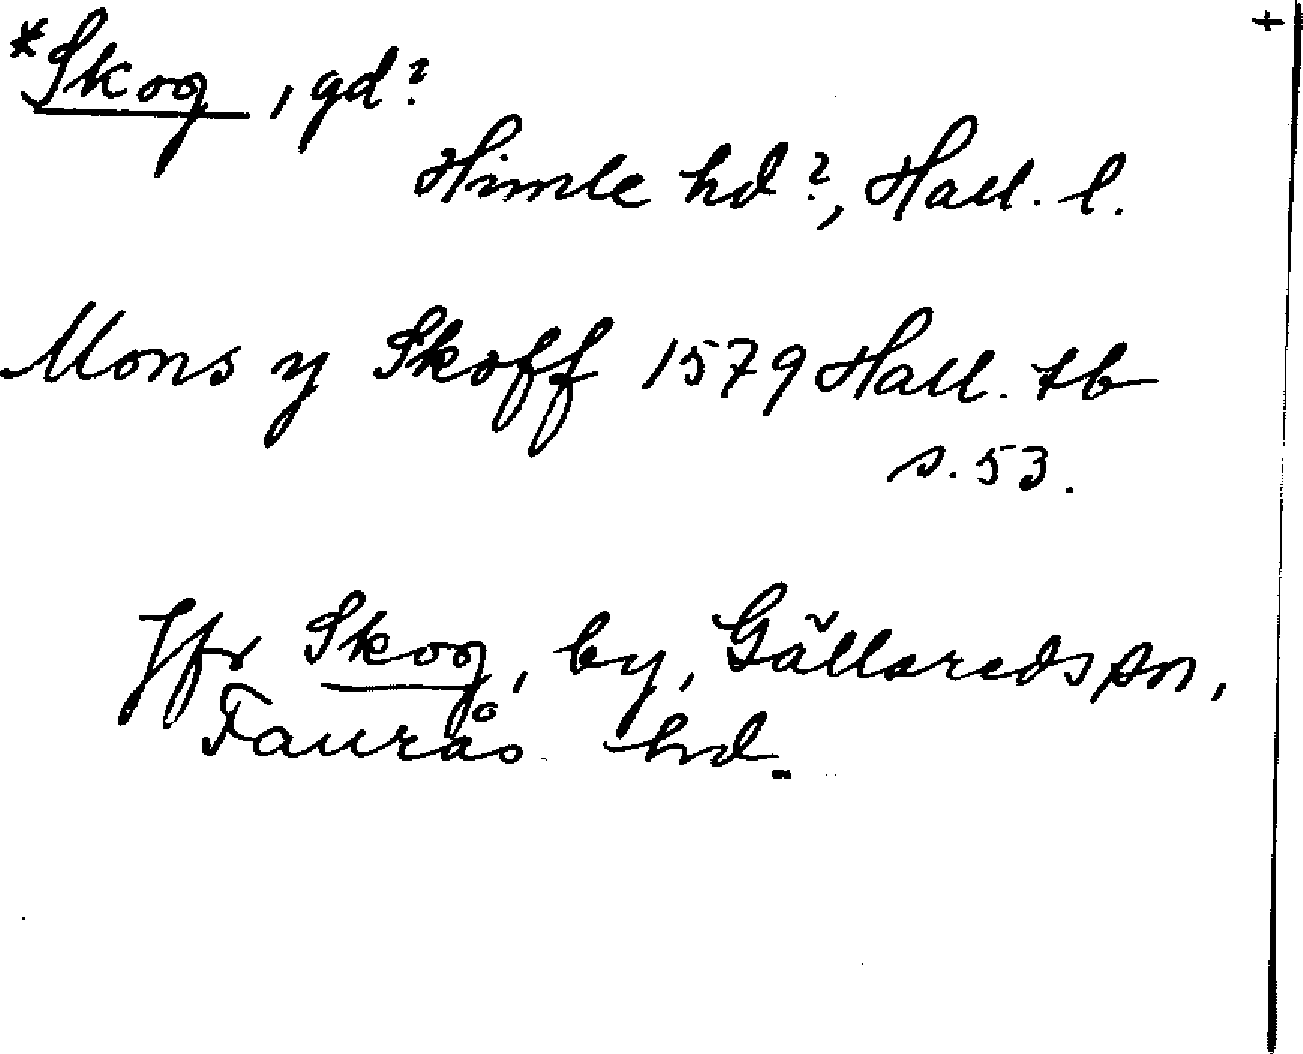 *Skog, gd? +
Himle hd?, Hall. l.
Mons y Skoff 1579 Hall. tb
s. 53.
Jfr Skog, by, Gällareds sn,
Faurås hd.